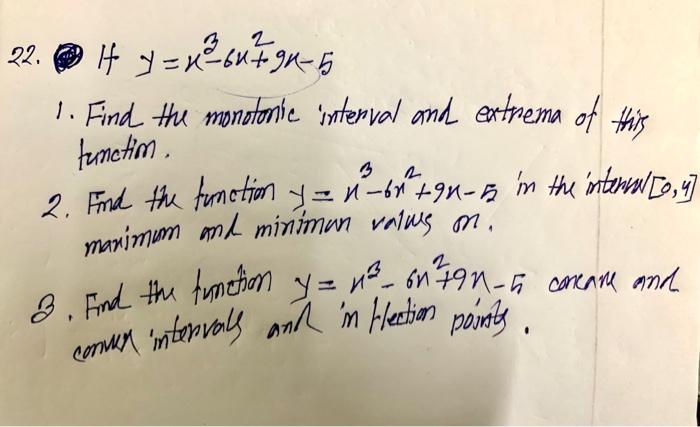 22. If y = x³ - 6x² + 9x - 5
1. Find the monotonic interval and extrema of this
function.
2. Find the function y = x³ - 6x² + 9x - 5 in the interval [0,4]
maximum and minimum values on.
3. Find the function y = x³ - 6x² + 9x - 5 concave and
convex intervals and inflection points.